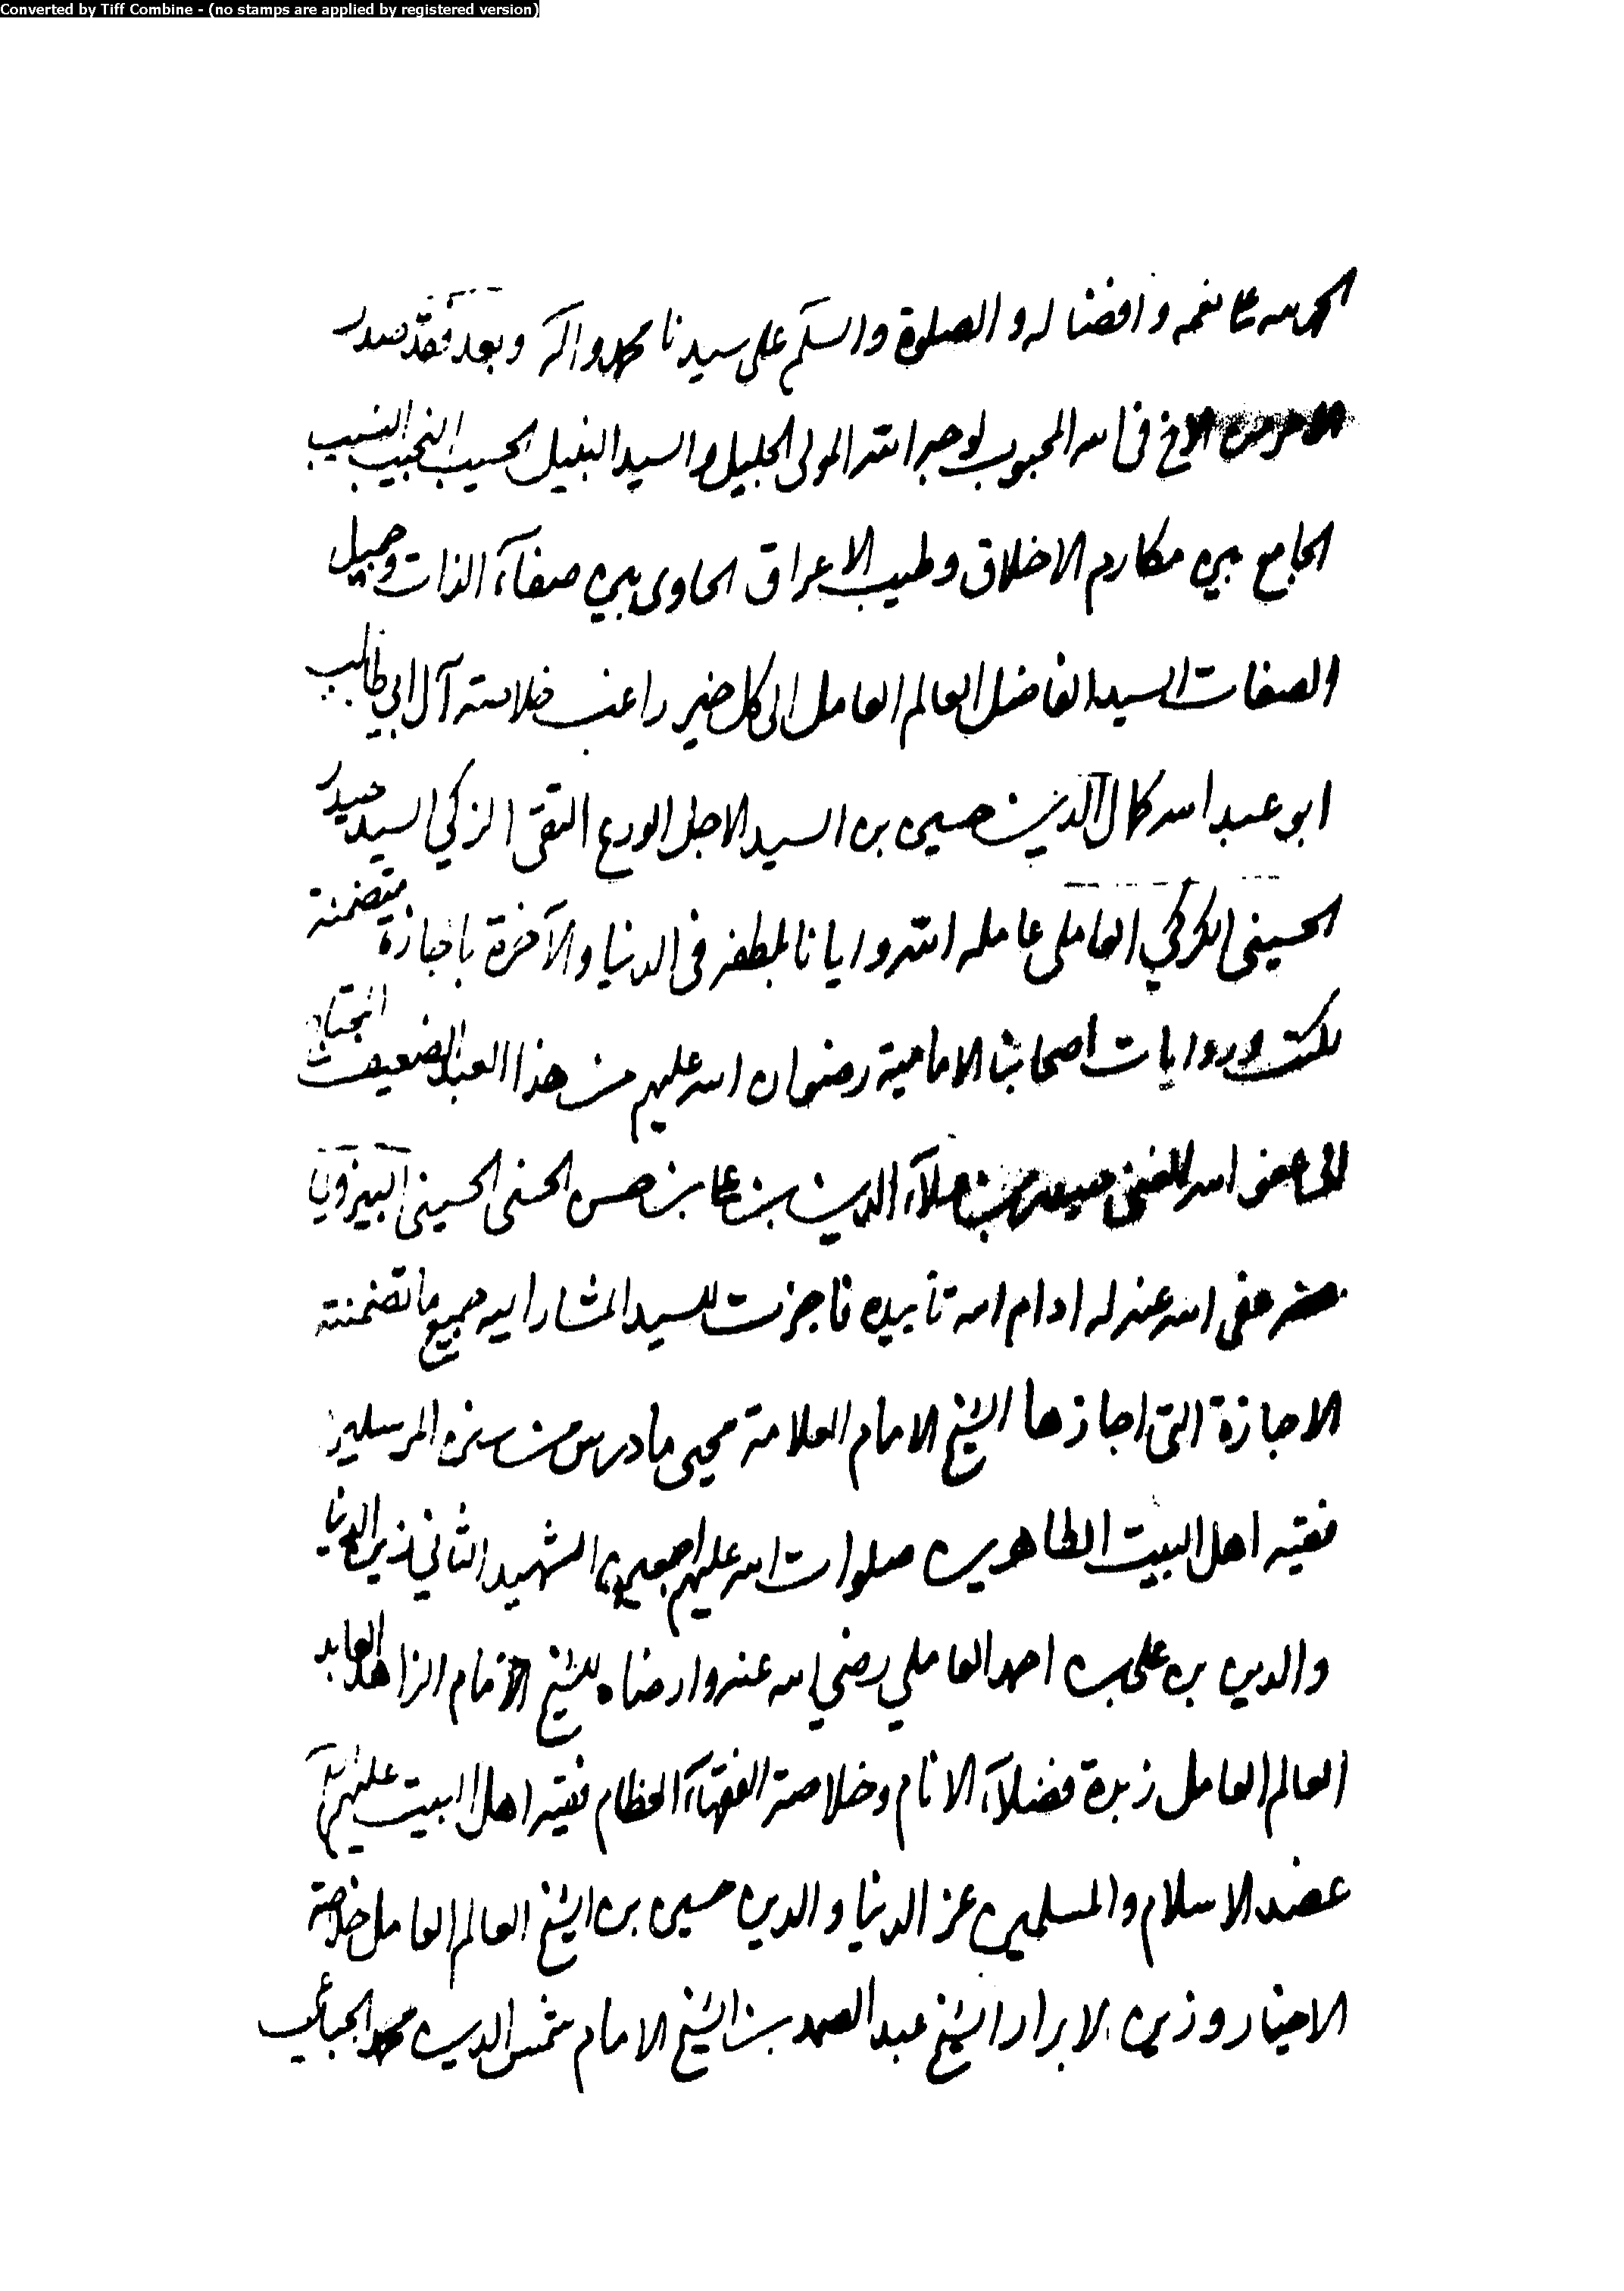 Converted by Tiff Combine - (no stamps are applied by registered version)
الحمد لله على نعمه وافضاله والصلوة والسلم على سيدنا محمد واله وبعد فقد صدر
الامر من الاخ فى الله المحبوب لوجه الله المولى الجليل والسيد النبيل الحسيب النجيب النسيب
الجامع بين مكارم الاخلاق وطيب الاعراق الحاوى بين صفآء الذات وجميل
والصفات السيد الفاضل العالم العامل الى كل خير راغب خلاصة آل ابي طالب
ابو عبد الله كمال الدين حسين بن السيد الاجل الورع التقى الزكي السيد حيدر
الحسينى الكركي العاملى عامله الله وايانا بلطفه فى الدنيا والآخرة باجازة متضمنة
لكتب وروايات اصحابنا الامامية رضوان الله عليهم من هذا العبد الضعيف المحتاج
الى عفو الله الغنى حيدر بن علآء الدين بن على بن حسن الحسنى الحسينى البيزوى
عفى الله عنه له ادام الله تأييده فاجزت للسيد المشار اليه جميع ما تضمنته
الاجازة التى اجازها الشيخ الامام العلامة محيى ما درس من سنن المرسلين
فقيه اهل البيت الطاهرين صلوات الله عليهم اجمعين الشهيد الثاني زين الدنيا
والدين بن على بن احمد العاملي رضي الله عنه وارضاه للشيخ الامام الزاهد العابد
العالم العامل زبدة فضلآء الانام وخلاصة الفقهآء العظام فقيه اهل البيت عليهم السلم
عضد الاسلام والمسلمين عز الدنيا والدين حسين بن الشيخ العالم العامل خلاصة
الاخيار وزين الابرار الشيخ عبد الصمد بن الشيخ الامام شمس الدين محمد الجباعي